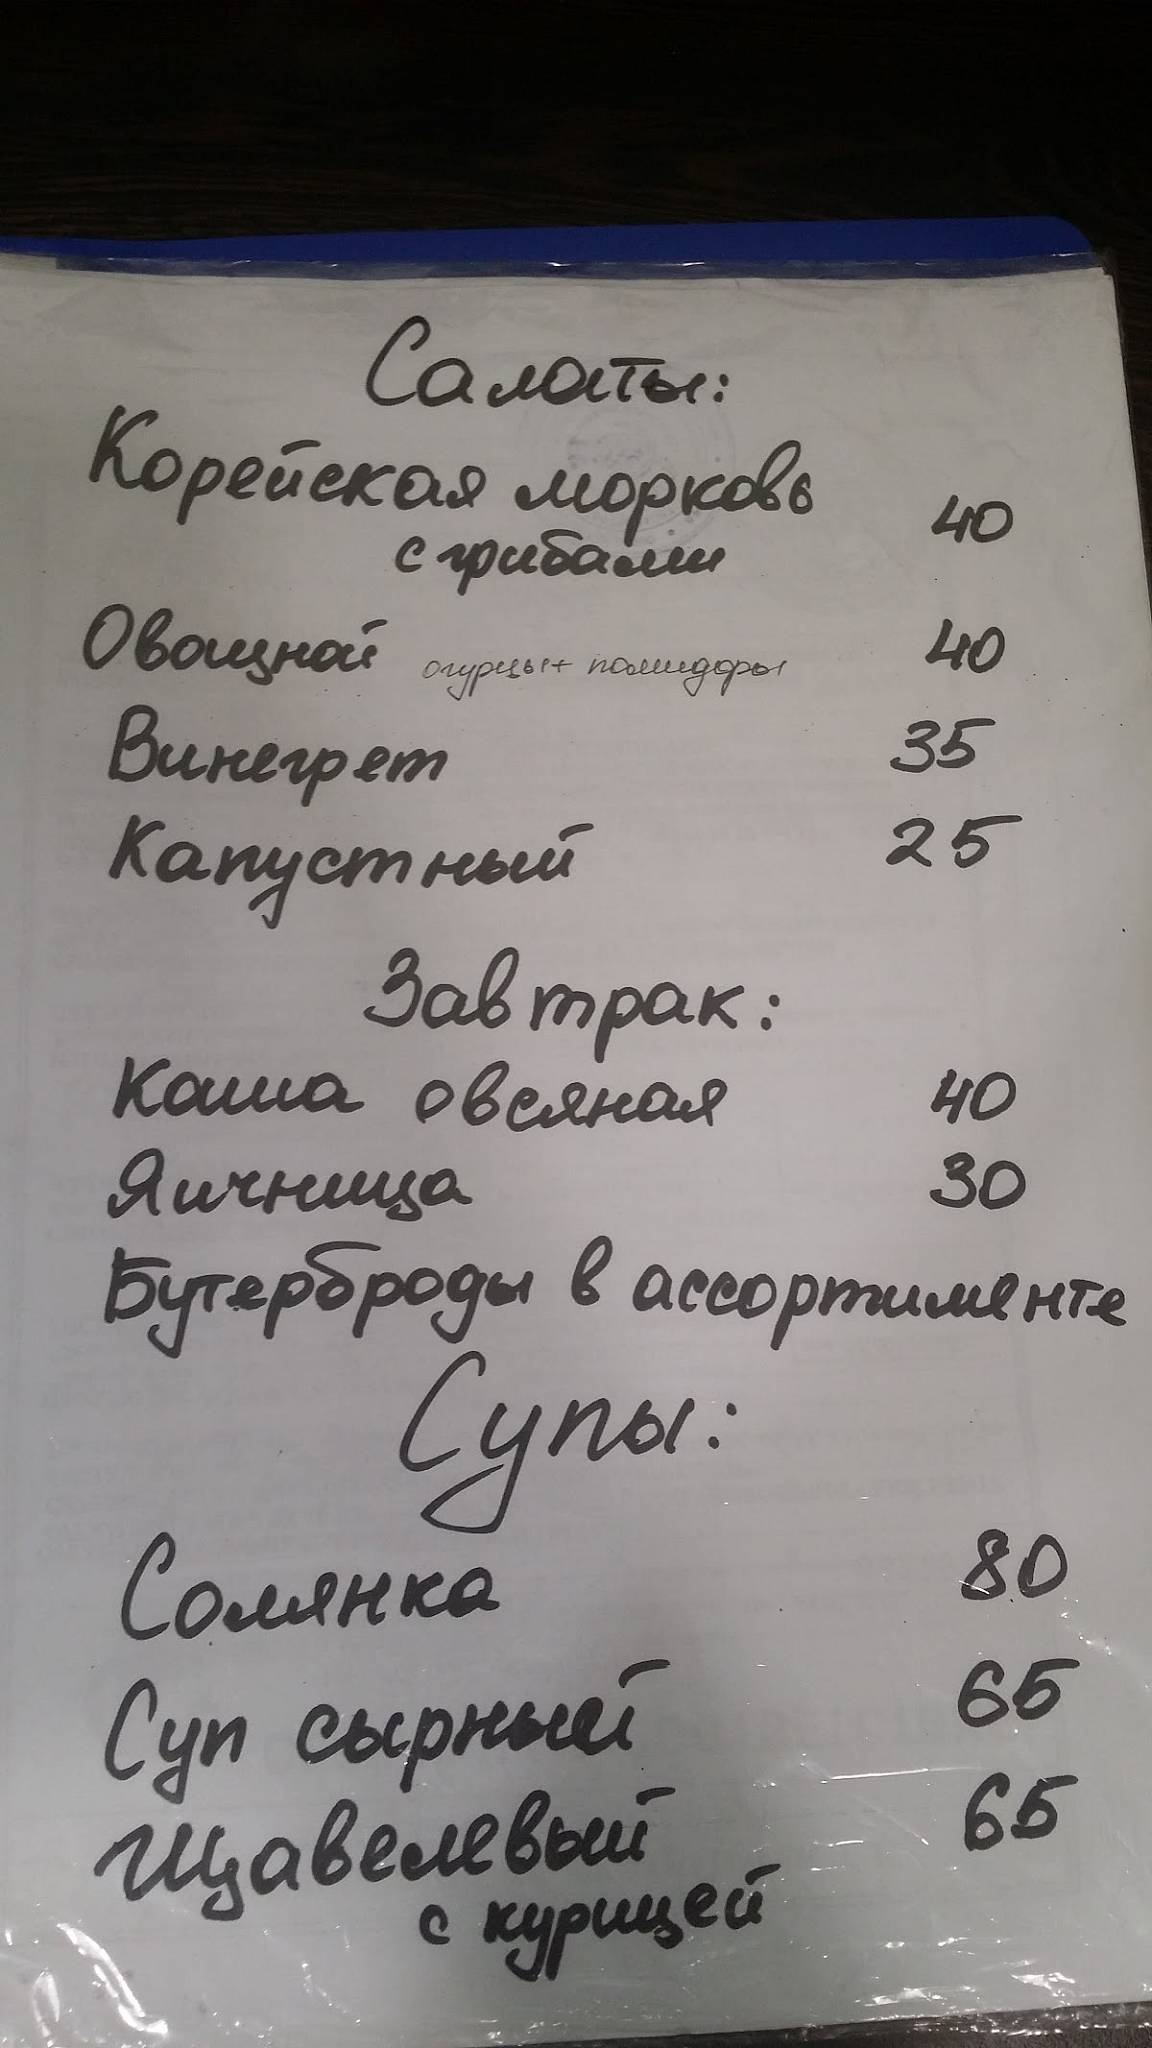 Салаты:
Корейская морковь
с грибами 40
Овощной огурцы+ помидоры 40
Винегрет 35
Капустный 25
Завтрак:
Каша овсяная 40
Яичница 30
Бутерброды в ассортименте
Супы:
Солянка 80
Суп сырный 65
Щавелевый 65
с курицей